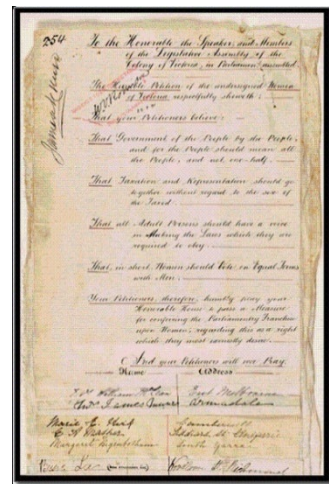 254
To the Honorable the Speaker, and Members
of the Legislative Assembly of the
Colony of Victoria, in Parliament assembled.
The Humble Petition of the undersigned Women
of Victoria respectfully sheweth:
That your Petitioners believe:
That Government of the People by the People,
and for the People should mean all
the People, and not one-half.
That Taxation and Representation should go
together without regard to the sex of
the Taxed.
That all Adult Persons should have a voice
in Making the Laws which they are
required to obey.
That, in short, Women should Vote on Equal Terms
with Men.
Your Petitioners, therefore, humbly pray your
Honorable House to pass a Measure
for conferring the Parliamentary Franchise
upon Women, regarding this as a right
which they most earnestly desire.
And your Petitioners will ever Pray.
Name Address
East Melbourne
James Armadale
Marie E.
Margaret South Yarra
Richmond